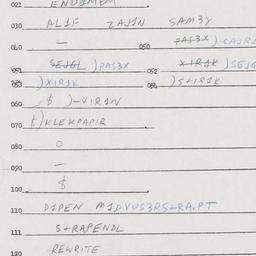 021 ENDIMEM
030 AL1F ZAJ1N SAM3Y
040 — 050 PAS3X )
051 SEJGL )PAS3X 052 X1R1K )SEJG
053 )X1R1K 054 )S+1R1K
060 $ )-V1R1N
070 $)KLEKPAP1R
080 O
090 —
100 $
110 D1PEN M1DVUS3RS+RA.PT
111 S+RAPENDL
120 REWRITE